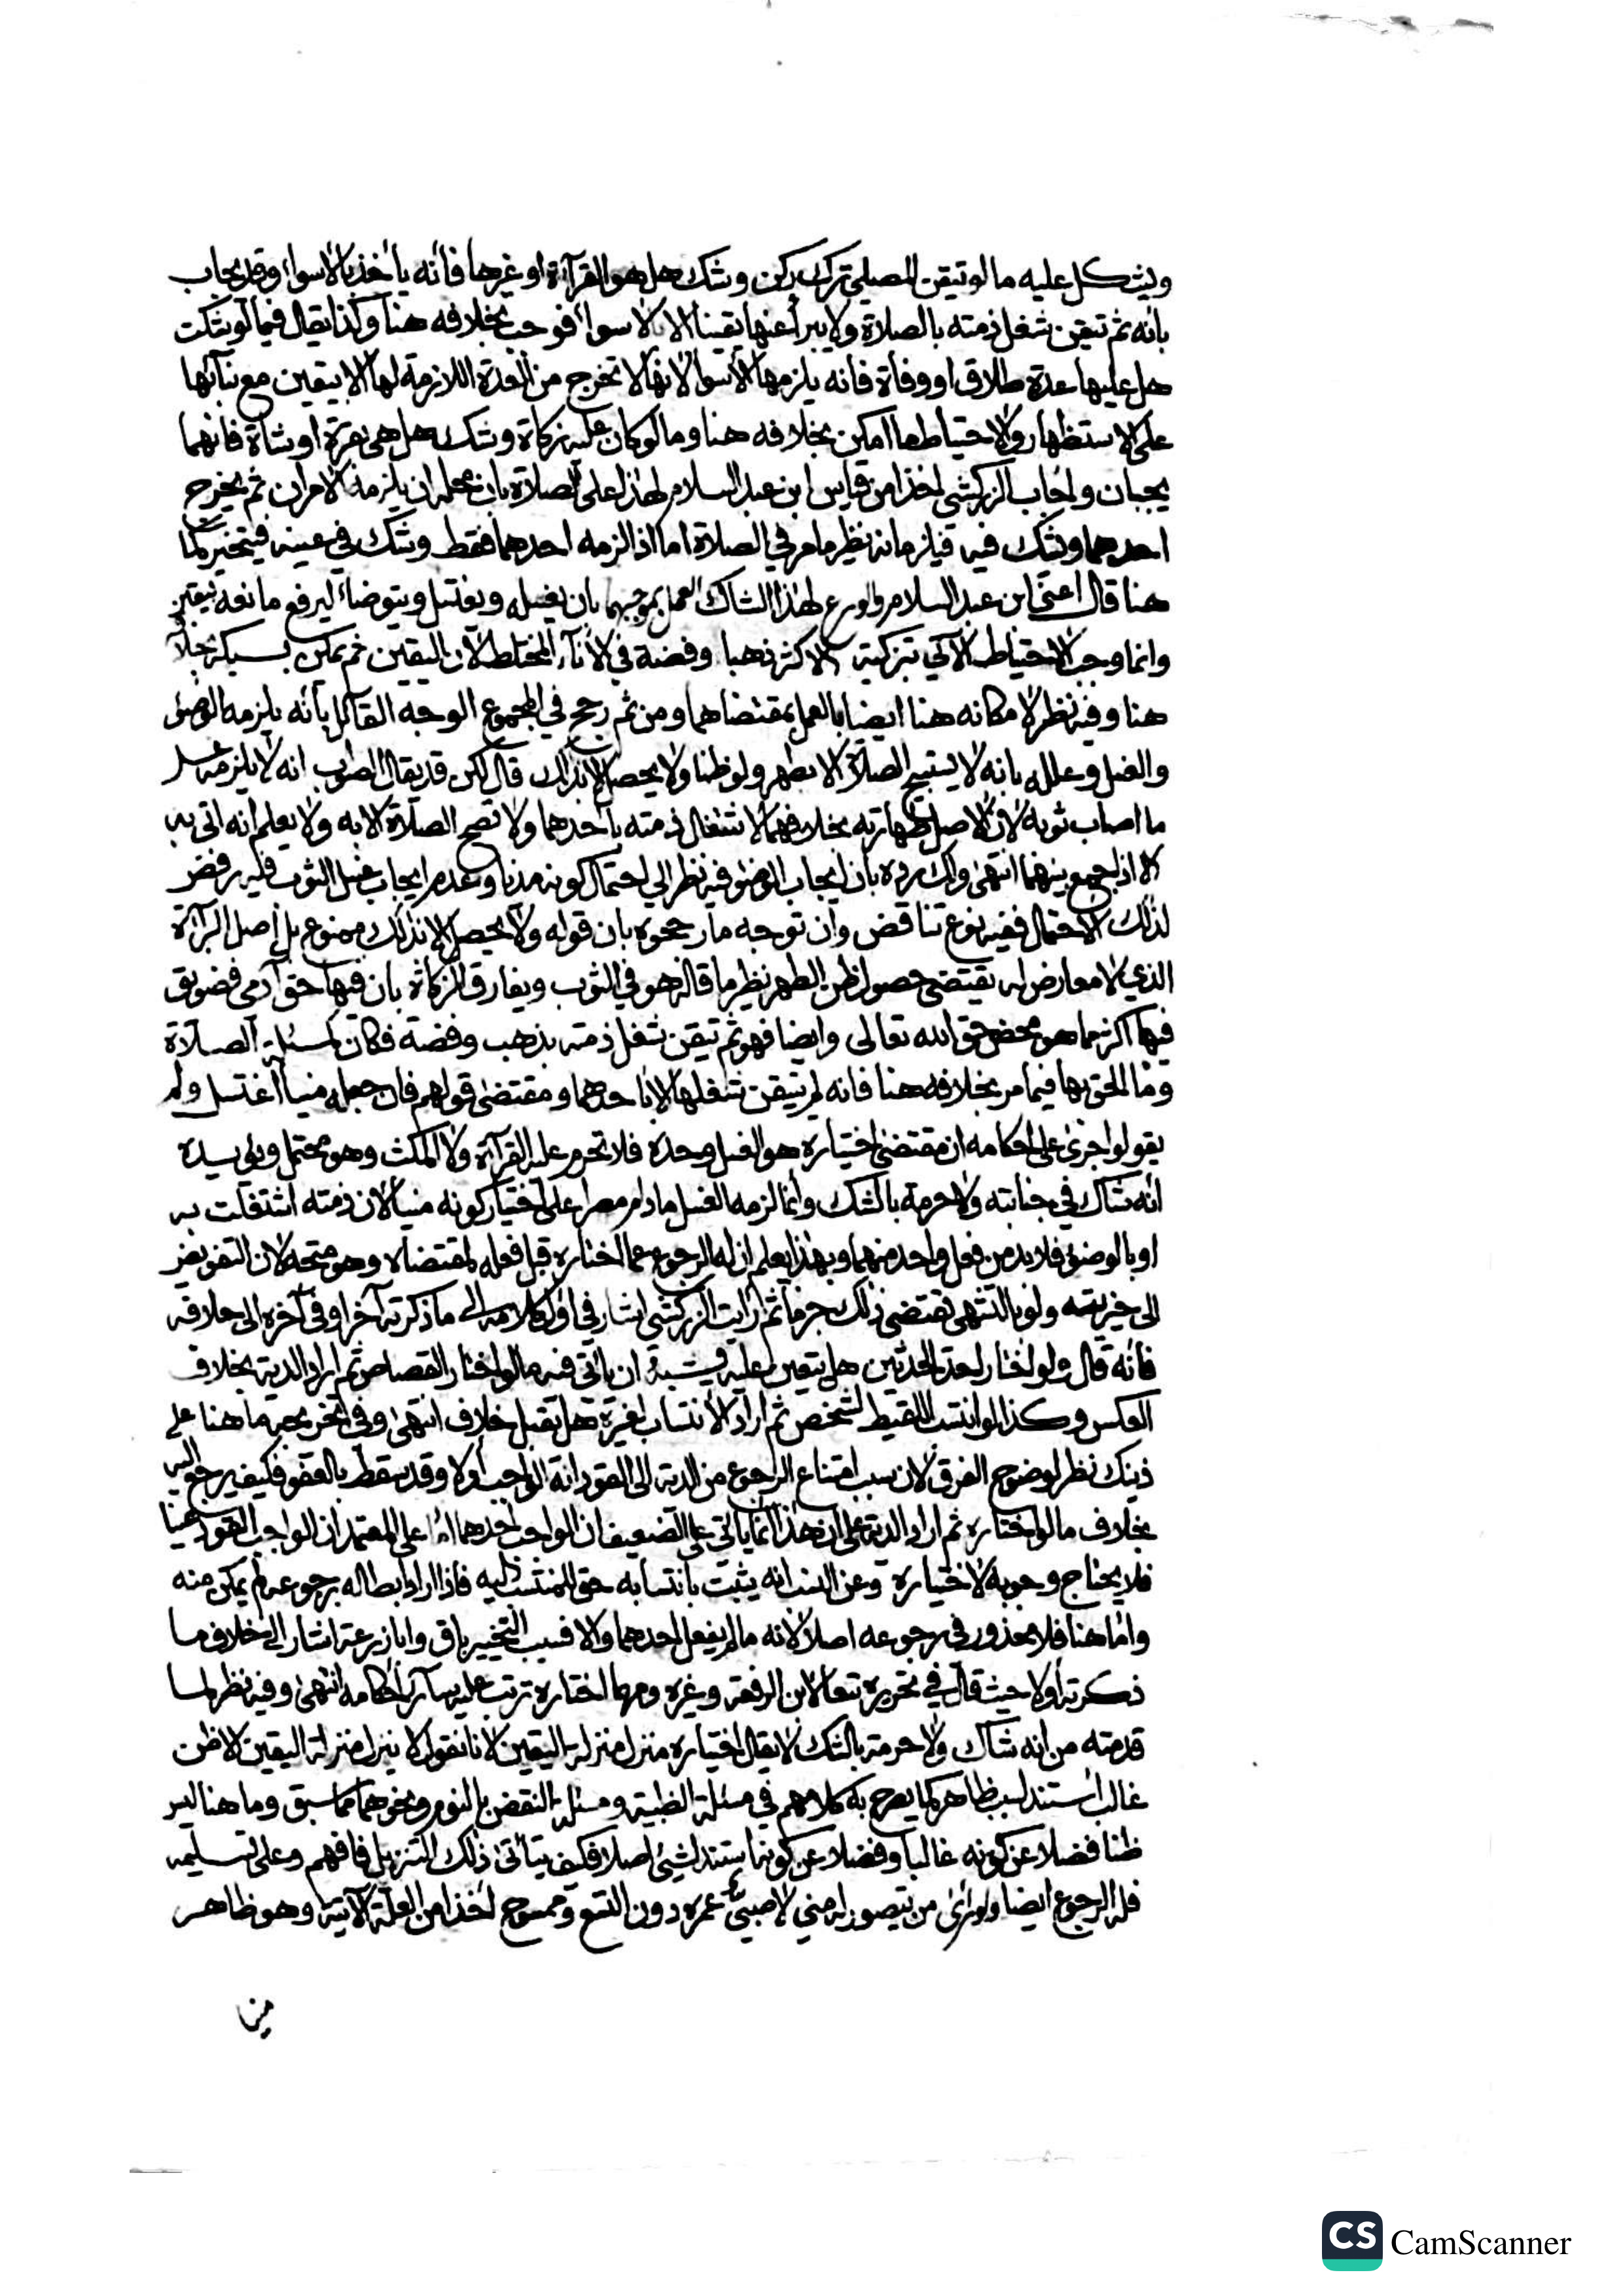 ويشكل عليه ما لو تيقن المصلي ترك ركن وشك هل هو القرآءة او غيرها فأنه يأخذ بالاسوأ وقد يجاب
بانه ثم تيقن شغل ذمته بالصلاة ولا يبرأ عنها يقينا الا بالاسوأ فوجب بخلافه هنا وكذا يقال فيما لو شكت
هل عليها عدة طلاق او وفاة فانه يلزمها الأسوأ لانها لا تخرج من العدة اللازمة لها الا بيقين مع بنآئها
على الاستظهار والاحتياط ما امكن بخلافه هنا وما لو كان عليه زكاة وشك هل هي بقرة او شاة فانهما
يجبان واجاب الزركشي اخذا من قياس ابن عبد السلام لهذا على الصلاة بان محله ان يلزمه الامران ثم يخرج
احدهما ويشك فيه فيلزمانه نظير ما مر في الصلاة اما اذا لزمه احدهما فقط وشك في عينه فيتخير كما
هنا قال اعني ابن عبد السلام والورع لهذا الشاك العمل بموجبهما بان يغسله ويغتسل ويتوضأ ليرفع مانعه بيقين
وانما وجب الاحتياط الآتي بتزكية الاكثر ذهبا وفضة في الأنآء المختلط لأن اليقين ثم يمكن بسبكه بخلافه
هنا وفيه نظر لامكانه هنا ايضا بالعمل بمقتضاهما ومن ثم رجح في المجموع الوجه القآئل بأنه يلزمه الوضوء
والغسل وعلله بانه لا يستبيح الصلاة الا بطهر ولو ظنا ولا يحصل الا بذلك قال لكن قد يقال الصواب انه لا يلزمه غسل
ما اصاب ثوبه لان الاصل طهارته بخلافهما لاشتغال ذمته بأحدهما ولا تصح الصلاة الا به ولا يعلم انه اتى به
الا اذا جمع بينهما انتهى ولك رده بأن ايجاب الوضوء فيه نظر الى احتمال كونه مذيا وعدم ايجاب غسل الثوب فيه رفض
لذلك الاحتمال ففيه نوع تناقض وان توجه ما رجحوه بان قوله ولا يحصل الا بذلك ممنوع بل أصل البرآءة
الذي لا معارض له يقتضي حصول ظن الطهر نظير ما قاله هو في الثوب ويفارق الزكاة بان فيها حق آدمي فضويق
فيها اكثر مما هو محض حق الله تعالى وايضا فهو ثم تيقن شغل ذمته بذهب وفضة فكان كمسئلة الصلاة
وما الحق بها فيما مر بخلافه هنا فانه لم يتيقن شغلها الا بأحدهما ومقتضى قولهم فان جعله منيا اغتسل ولم
يقولوا جرى على احكامه ان مقتضى اختياره هو الغسل وحده فلا تحرم عليه القرآءة ولا المكث وهو محتمل ويؤيده
انه شاك في جنابته ولا حرمة بالشك وانما لزمه الغسل ما دام مصرا على اختيار كونه منيا لان ذمته اشتغلت به
او بالوضوء فلا بد من فعل واحد منهما وبهذا يعلم ان له الرجوع عما اختاره قبل فعله لمقتضاه وهو متجه لان التفويض
الى خيرته ولو بالتشهي يقتضي ذلك جزما ثم رأيت الزركشي اشار في اول كلامه الى ما ذكرته آخرا وفي آخره الى خلافه
فانه قال ولو اختار احد الحدثين هل يتعين عليه ويشبه ان يأتي فيه ما لو اختار القصاص ثم اراد الدية بخلاف
العكس وكذا لو انتسب اللقيط لشخص ثم اراد الأنتساب لغيره هل يقبل خلاف انتهى وفي تخريجه ما هنا على
ذينك نظر لوضوح الفرق لان سبب امتناع الرجوع من الدية الى القود انه الواجب اولا وقد سقط بالعفو فكيف يرجع اليه
بخلاف ما لو اختاره ثم اراد الدية على ان هذا انما يأتي على الضعيف ان الواجب احدهما اما على المعتمد ان الواجب القود عينا
فلا يحتاج وجوبه لاختياره وعن النسب انه يثبت بانتسابه حق للمنتسب اليه فاذا اراد ابطاله برجوعه لم يمكن منه
واما هنا فلا محذور في رجوعه اصلا لانه ما لم يفعل احدهما والا فسبب التخيير باق وابا زرعة اشار الى خلاف ما
ذكرته اولا حيث قال في تحريره تبعا لابن الرفعة وغيره ومهما اختاره ترتب عليه سآئر أحكامه انتهى وفيه نظر لما
قدمته من انه شاك ولا حرمة بالشك لا يقال اختياره منزل منزلة اليقين لانا نقول لا ينزل منزلة اليقين الا ظن
غالب استند لسبب ظاهر كما يصرح به كلامهم في مسئلة الظبية ومسئلة النقض بالنوم ونحوهما مما سبق وما هنا ليس
ظنا فضلا عن كونه غالبا وفضلا عن كونه استند لشيء اصلا فكيف يتأتى ذلك التنزيل فافهم وعلى تسليمه
فله الرجوع ايضا ولو رأى من يتصور له مني لا صبي عمره دون التسع وممسوح اخذا من العلة الآتية وهو ظاهر
من
CS CamScanner